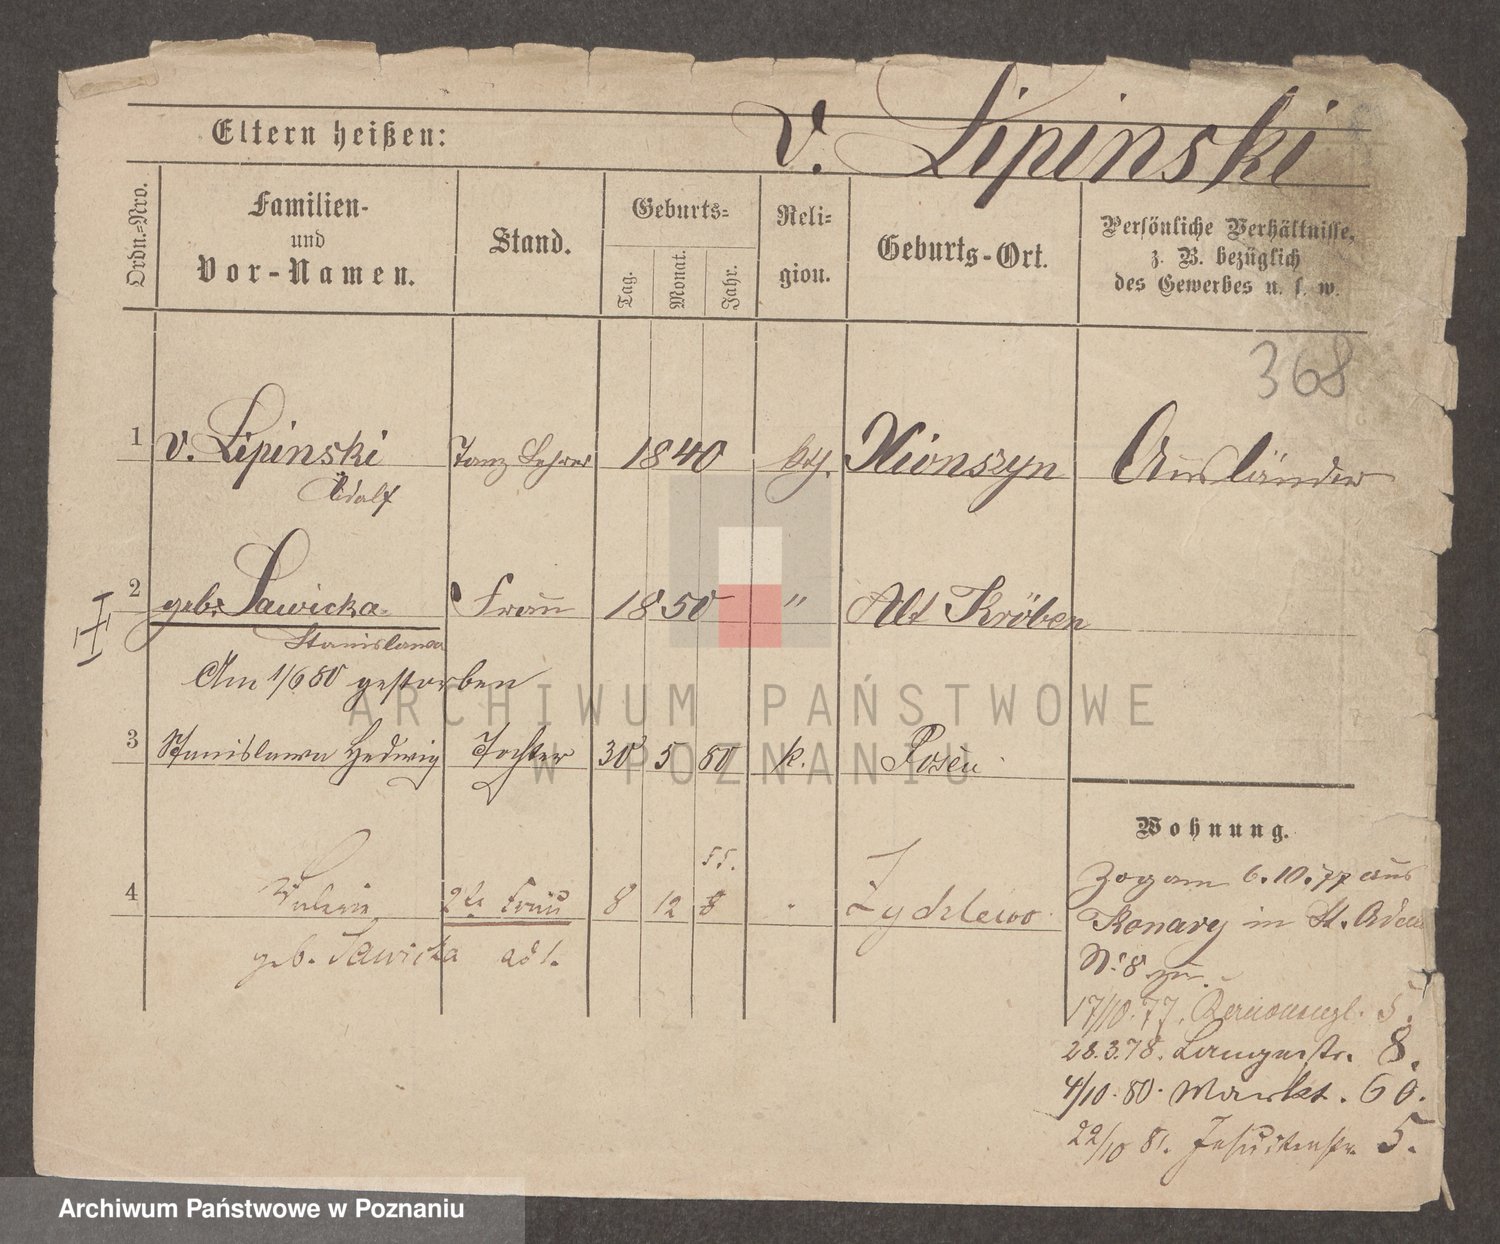 v. Lipinski
Eltern heißen:
Ordn.=Nro.
Familien-
und
Vor-Namen.
Stand.
Geburts=
Tag.
Monat.
Jahr.
Reli=
gion.
Geburts-Ort.
Persönliche Verhältnisse,
z. B. bezüglich
des Gewerbes u. s. w.
368
1 v. Lipinski Tanz Lehrer 1840 kth. Xionszyn Ausländer
Adolf
2 geb. Sawicka Frau 1850 " Alt Kröben
Stanislawa
Am 1/6 80 gestorben
3 Stanislawa Hedwig Tochter 30 5 80 k. Posen
Wohnung.
55.
4 Valerie 2te Frau 8 12 Zydlewo
geb. Sawicka
Zog am 6.10.77 aus
Konary in St. Adal
No. 8 zu.
17/10.77. 5.
28.3.78. Langestr. 8.
4/10.80. Markt. 60.
22/10 81. Jesuitenstr. 5.
ARCHIWUM PAŃSTWOWE
W POZNANIU
Archiwum Państwowe w Poznaniu